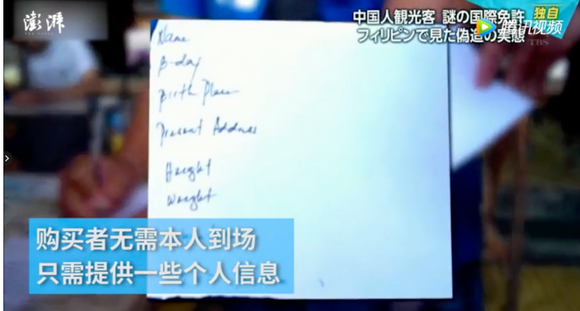 澎湃
中国人観光客 謎の国際免許 独自
フィリピンで見た偽造の実態
腾讯视频
TBS
Name
B-day
Birth Place
Present Address
Height
Weight
购买者无需本人到场
只需提供一些个人信息